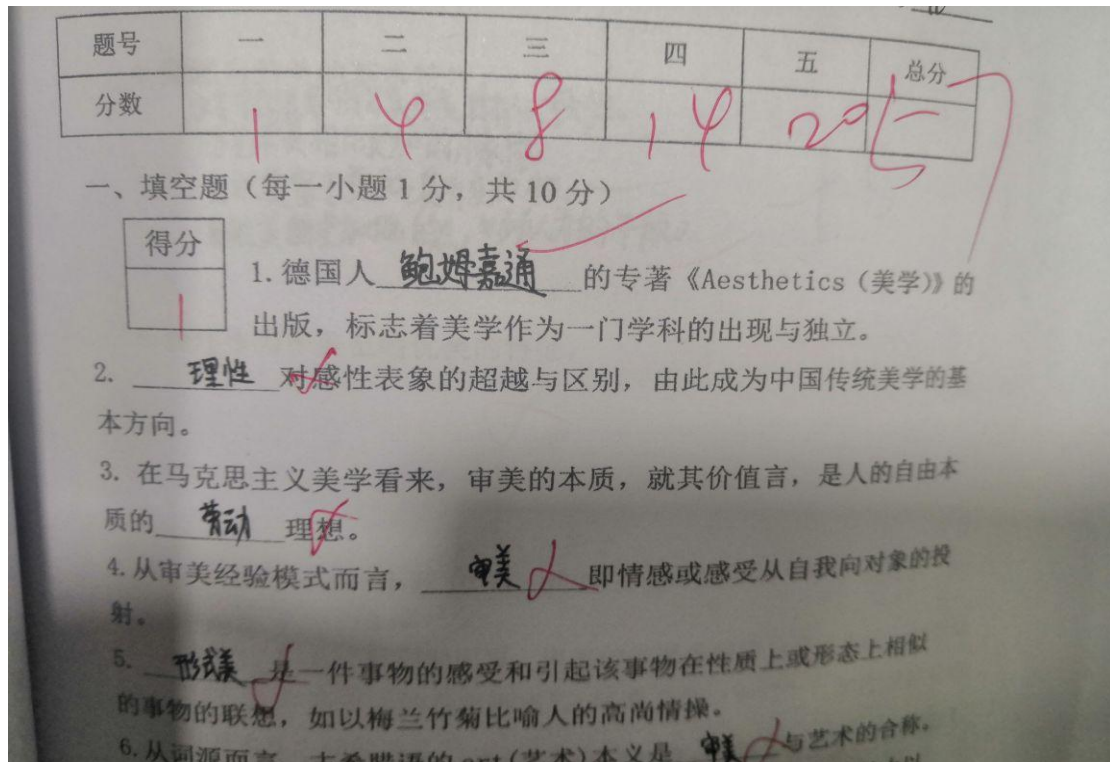 题号 一 二 三 四 五 总分
分数 1 4 8 14 20
一、填空题（每一小题 1 分，共 10 分）
得分
1
1.德国人 鲍姆嘉通 的专著《Aesthetics（美学）》的
出版，标志着美学作为一门学科的出现与独立。
2. 理性 对感性表象的超越与区别，由此成为中国传统美学的基
本方向。
3. 在马克思主义美学看来，审美的本质，就其价值言，是人的自由本
质的 劳动 理想。
4.从审美经验模式而言， 审美 即情感或感受从自我向对象的投
射。
5. 形式美 是一件事物的感受和引起该事物在性质上或形态上相似
的事物的联想，如以梅兰竹菊比喻人的高尚情操。
6.从词源而言，古希腊语的 art(艺术)本义是 审美 与艺术的合称。